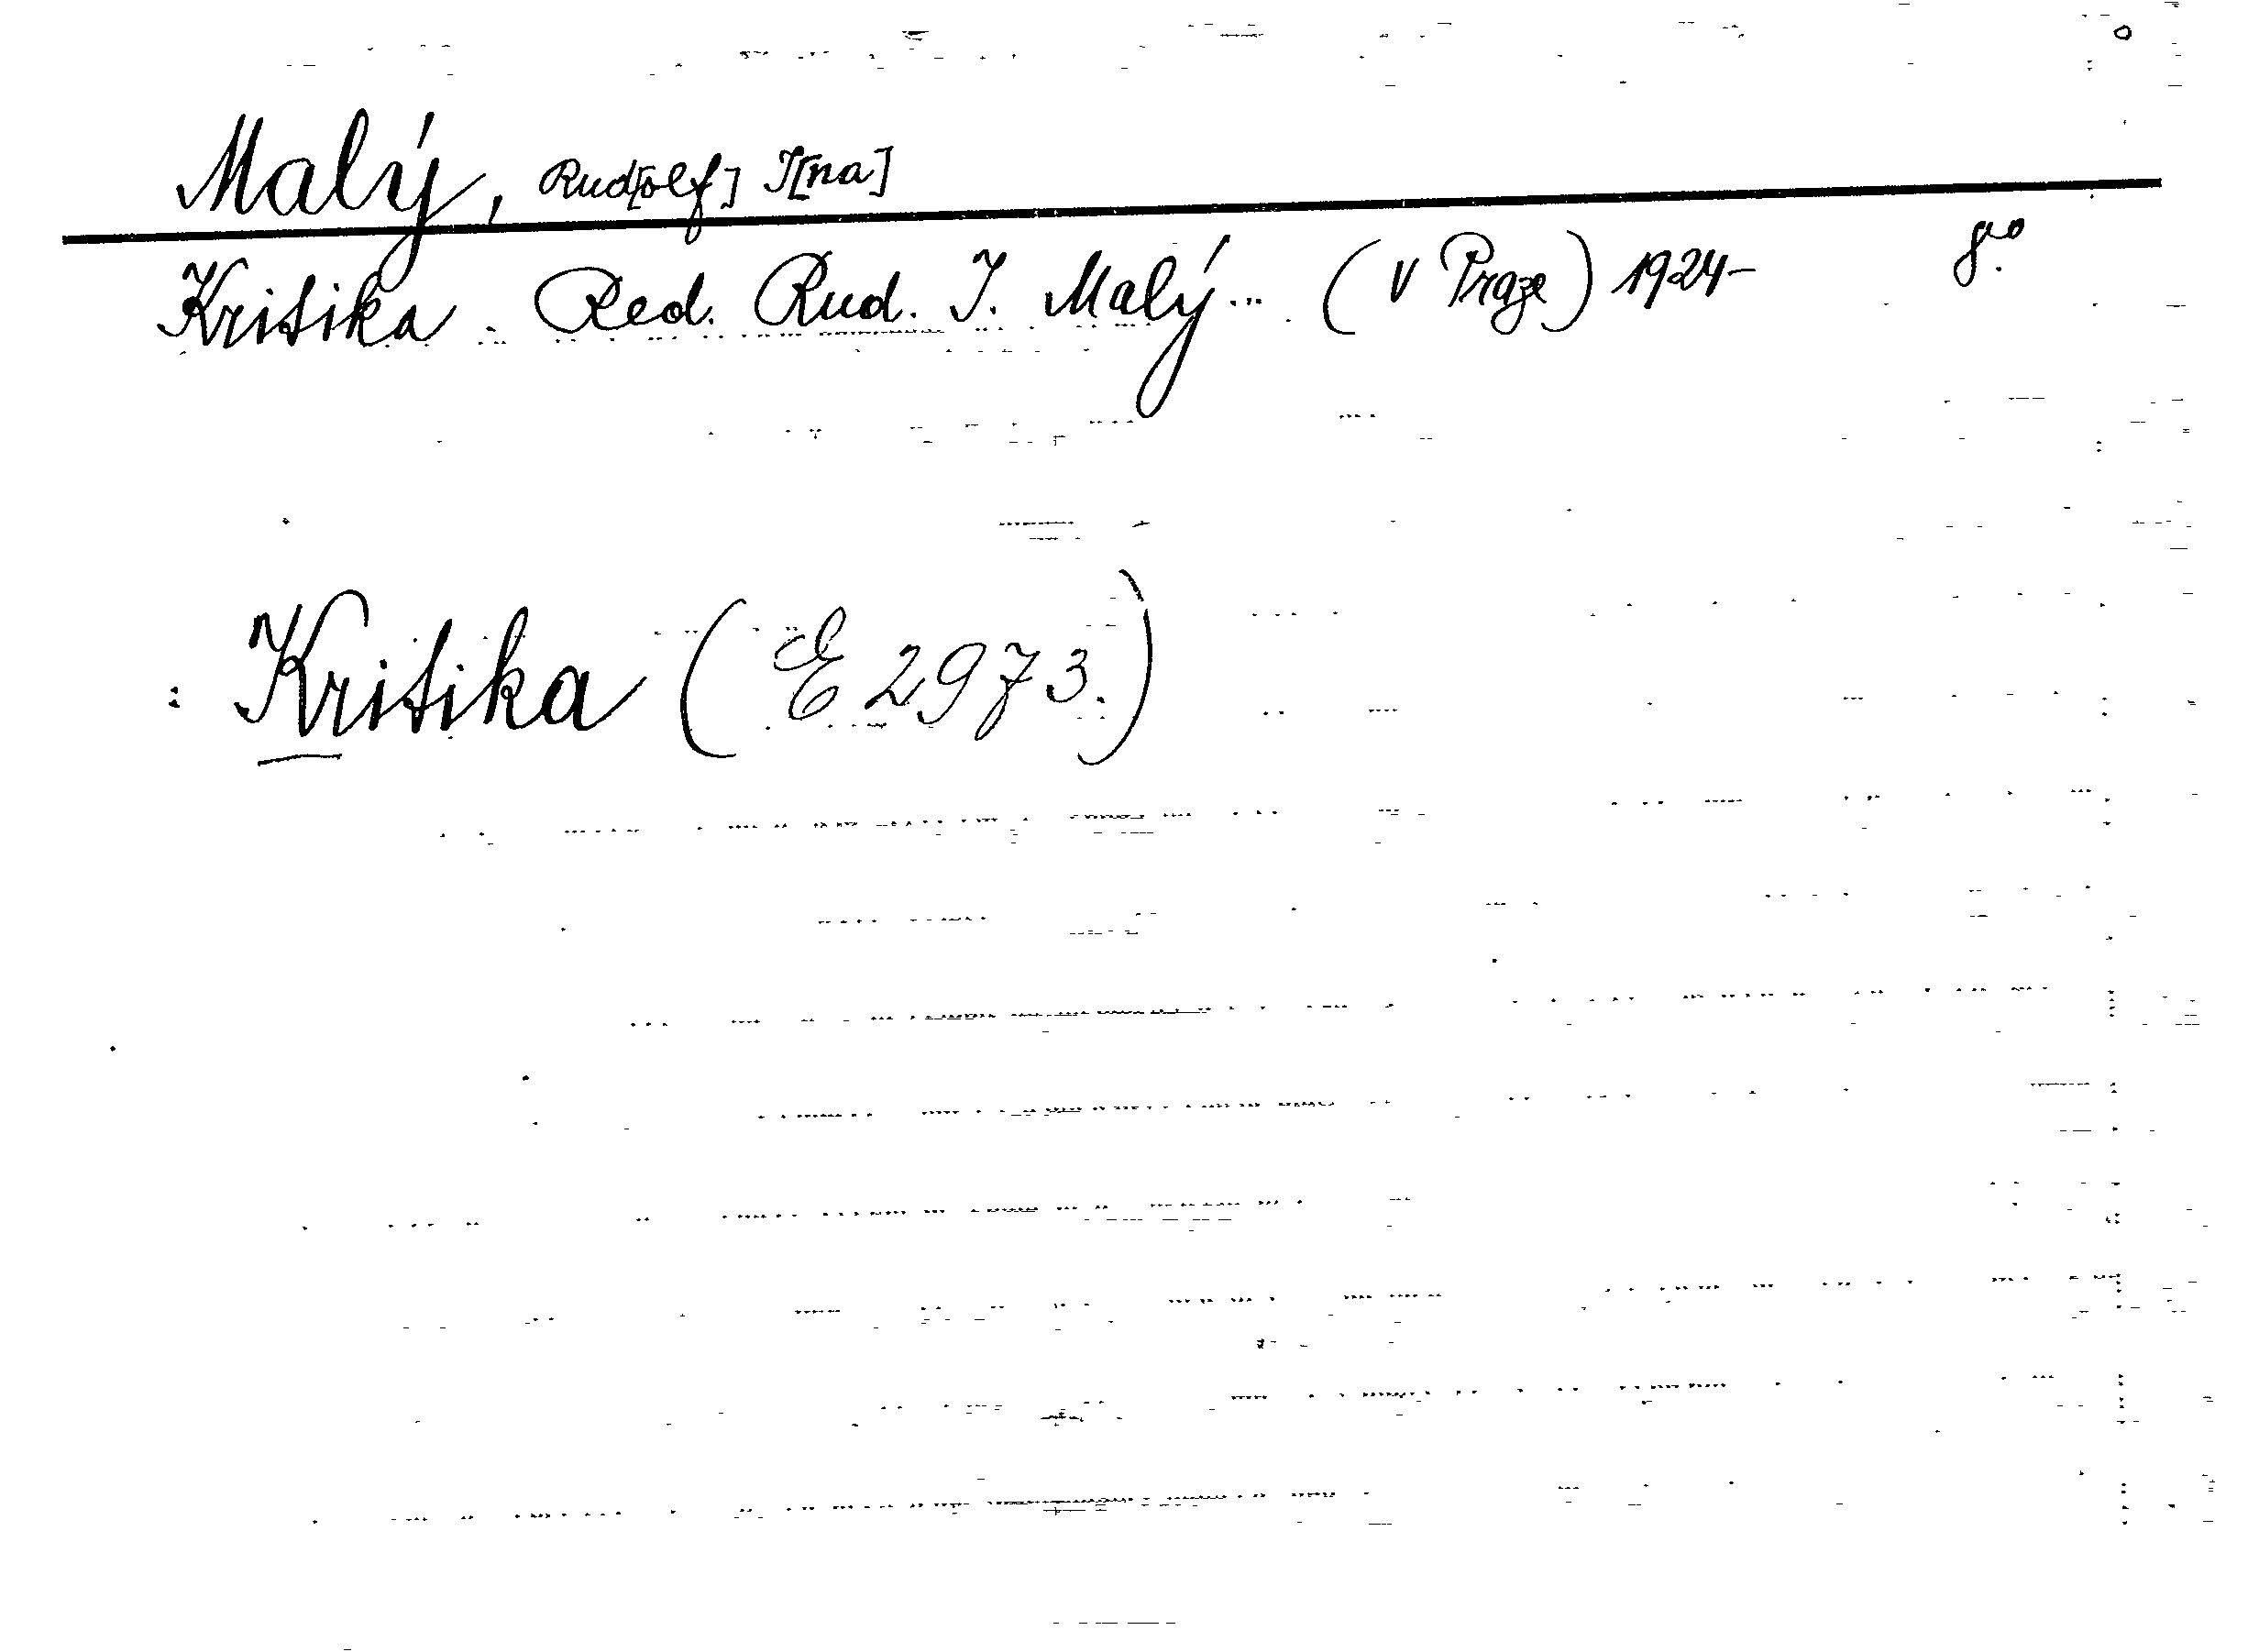 Malý, Rud[olf] I[na]
Kritika. Red. Rud. I. Malý... (V Praze) 1924- 8°.
: Kritika (E 2973.)